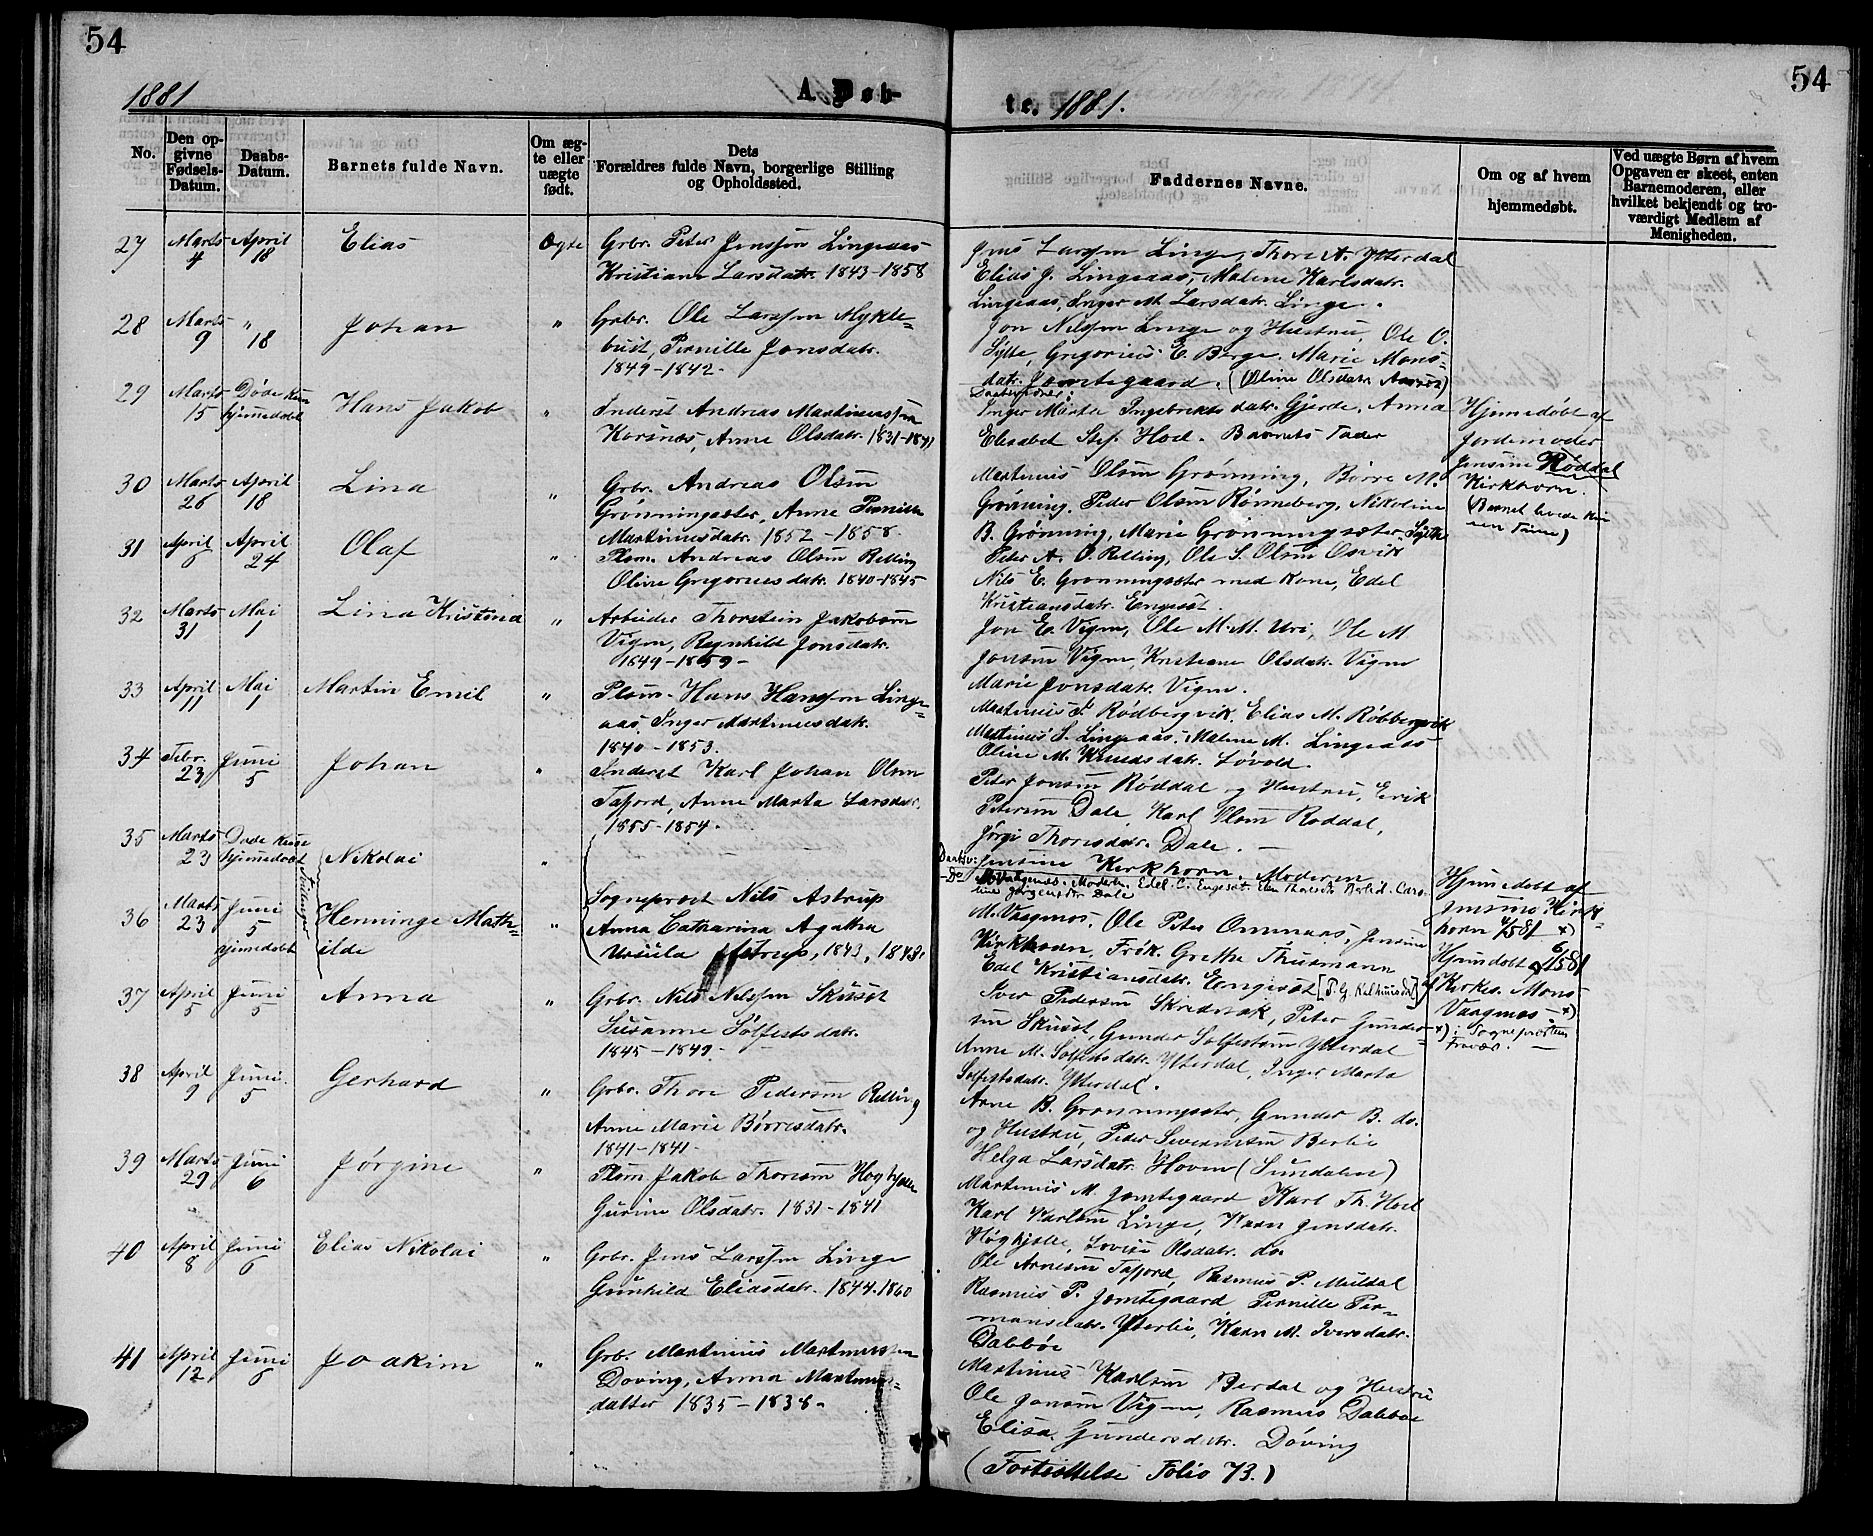 54
54
1881
A. Døb-
te. 1881.
No.
Den op-
givne
Fødsels-
Datum.
Daabs-
Datum.
Barnets fulde Navn.
Om æg-
te eller
uægte
født.
Dets
Forældres fulde Navn, borgerlige Stilling
og Opholdssted.
Faddernes Navne.
Om og af hvem
hjemmedøbt.
Ved uægte Børn af hvem
Opgaven er skeet, enten
Barnemoderen, eller
hvilket bekjendt og tro-
værdigt Medlem af
Menigheden.
27 Marts 4 April 18 Elias Ægte
Grbr. Peter Jenssøn Lingeaas
Kristiane Larsdatr. 1843-1858
Jens Larssøn Linge, Thore A. Ytterdal
Elias J. Lingeaas, Malene Karlsdatr.
Lingeaas, Inger M. Larsdatr. Linge.
28 Marts 9 " 18 Johan "
Grbr. Ole Larssøn Mykle-
bust, Pernille Jonsdatr.
1849-1842.
Jon Nilssøn Linge og Hustru, Ole O.
Sylte, Gregorius E. Berge, Marie Mons-
datr. Jemtegaard. (Oline Olsdatr.
29 Marts 15 Døde kun hjemmedøbt Hans Jakob "
Inderst Andreas Martinussøn
Korsnæs, Anne Olsdatr. 1831-1841
Inger Marte Ingebriktsdatr. Gjerde, Anna
Elisabet Hoel. Barnets Fader
Hjemmedøbt af
Jordemoder
Jensine Røddal
Kirkhorn.
(Barnet levede kun
en Time)
30 Marts 26 April 18 Lina "
Grbr. Andreas Olsøn
Grønningsæter, Anne Pernille
Martinusdatr. 1852-1858.
Martinus Olsøn Grønning, Børre M.
Grønning, Peder Olsøn Rønneberg, Nikoline
B. Grønning, Marie Grønningsæter, Sylte
31 April 6 April 24 Olaf "
Plsm. Andreas Olsøn Relling
Oline Gregoriusdatr. 1840-1845
Peter A. O. Relling, Ole S. Olsøn Osvik
Nils E. Grønningsæter med Kone, Edel
Kristiansdatr. Engeset.
32 Marts 31 Mai 1 Lina Kristina "
Arbeider Thorstein Jakobsøn
Vigen, Ragnhilde Jonsdatr.
1849-1859-
Jon E. Vigen, Ole M. M. Uri, Ole M
Jonsøn Vigen, Kristiane Olsdatr. Vigen
Marie Jonsdatr. Vigen.
33 April 11 Mai 1 Martin Emil "
Plsm. Hans Hanssøn Linge-
aas, Inger Martinusdatr.
1840-1853.
Martinus P. Rødbergvik, Elias M. Røbbergvik
Martinus S. Lingeaas, Malene M. Lingeaas
Oline M. Knudsdatr. Løvold.
34 Febr. 23 Juni 5 Johan "
Inderst Karl Johan Olsøn
Tafjord, Anne Marta Larsdatr.
1855-1854.
Peter Jonsøn Røddal og Hustru, Erik
Petersøn Dale, Karl Olsøn Røddal,
Jørgi Thoresdatr. Dale.
35 Marts 23 Døde kun hjemmedøbt Nikolai "
Jensine Kirkhorn, Moderen
Hjemdøbt af
Jensine Kirk-
horn 4/5 81
36 Marts 23 Juni 5 hjemmedøbt Tvillinger Henninge Math-
ilde "
Sogneprest Nils Astrup
Anna Catharina Agatha
Ursula Astrup, 1843, 1848.
M. Vaagnæs, Ole Peter Ommaas, Jensine
Kirkhorn, Frøk. Grethe Thesmann
Edel Kristiansdatr. Engeset
Hjemdøbt
Kirkes. Mons
Vaagnæs
Sogneprestens
Fravær.
37 April 5 Juni 5 Anna "
Grbr. Nils Nilssøn Skuset
Susanne Sølfestsdatr.
1845-1849-
Iver Pedersøn Skrednak, Peter Gunder-
søn Skuset, Gunder Sølfestsøn Ytterdal
Anne M. Sølfestsdatr. Ytterdal, Inger Marta
Sølfestsdatr. Ytterdal.
38 April 9 Juni 5 Gerhard "
Grbr. Thore Pedersøn Relling
Anne Marie Børresdatr.
1841-1841.
Arne B. Grønningsæter, Gunder B. do.
og Hustru, Peter Severinsøn Berlie
Helga Larsdatr. Hoven (Sundalen)
39 Marts 29 Juni 6 Jørgine "
Plsm Jakob Thoresøn Høghjelle
Gurine Olsdatr. 1831-1841
Martinus M. Jemtegaard Karl Th. Hoel
Karl Karlsøn Linge, Karn Jensdatr.
Høghjelle, Lovise Olsdatr. do.
40 April 8 Juni 6 Elias Nikolai "
Grbr. Jens Larssøn Linge
Gunhild Eliasdatr. 1844-1860
Ole Arnesøn Tafjord, Rasmus P. Muldal
Rasmus P. Jemtegaard, Pernille Per-
mansdatr. Ytterlie, Karn M. Iversdatr.
Døbbøe
41 April 12 Juni 6 Joakim "
Grbr. Martinus Martinussøn
Døving, Anna Martinus-
datter 1835-1838.
Martinus Karlsøn Berdal og Hustru
Ole Jonsøn Vigen, Rasmus Dabbøe
Elisa Gundersdatr. Døving
(Fortsættelse Folio 73.)